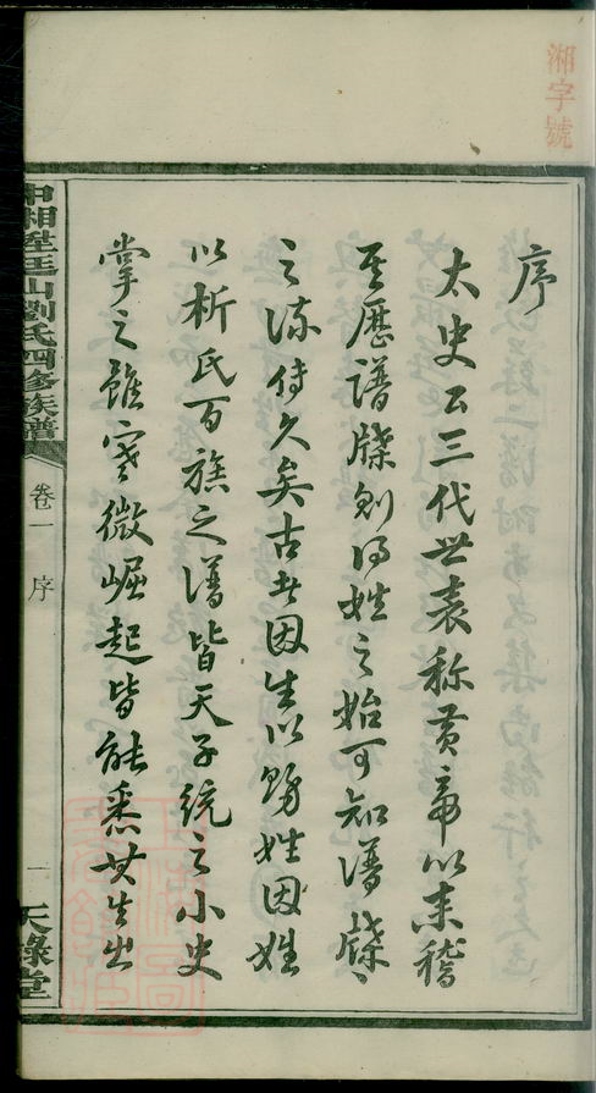 湘字號
序
太史公三代世表称黃帝以来稽
其歷譜牒則得姓之始可知譜牒
之流傳久矣古者因生以賜姓因姓
以析氏百族之譜皆天子統之小史
掌之雖寒微崛起皆能悉其生出
中湘陞廷山劉氏四修族譜
卷一
序
一
天祿堂